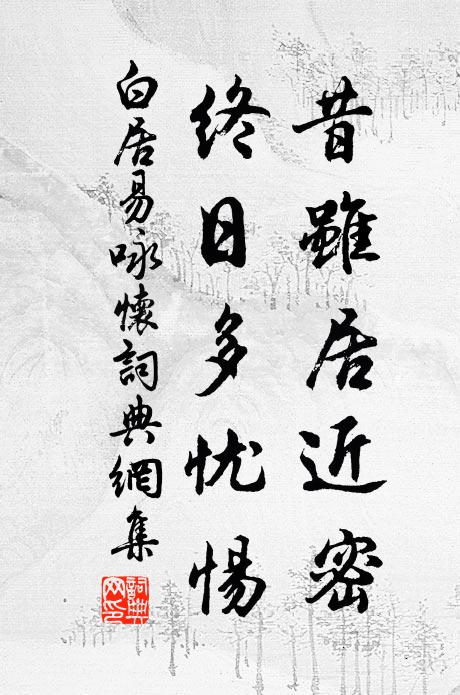 昔雖居近密
終日多忧惕
白居易咏懷詞典網集
詞典
网印